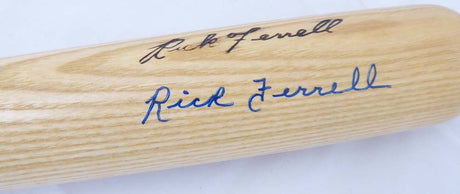 Rick Ferrell
Rick Ferrell